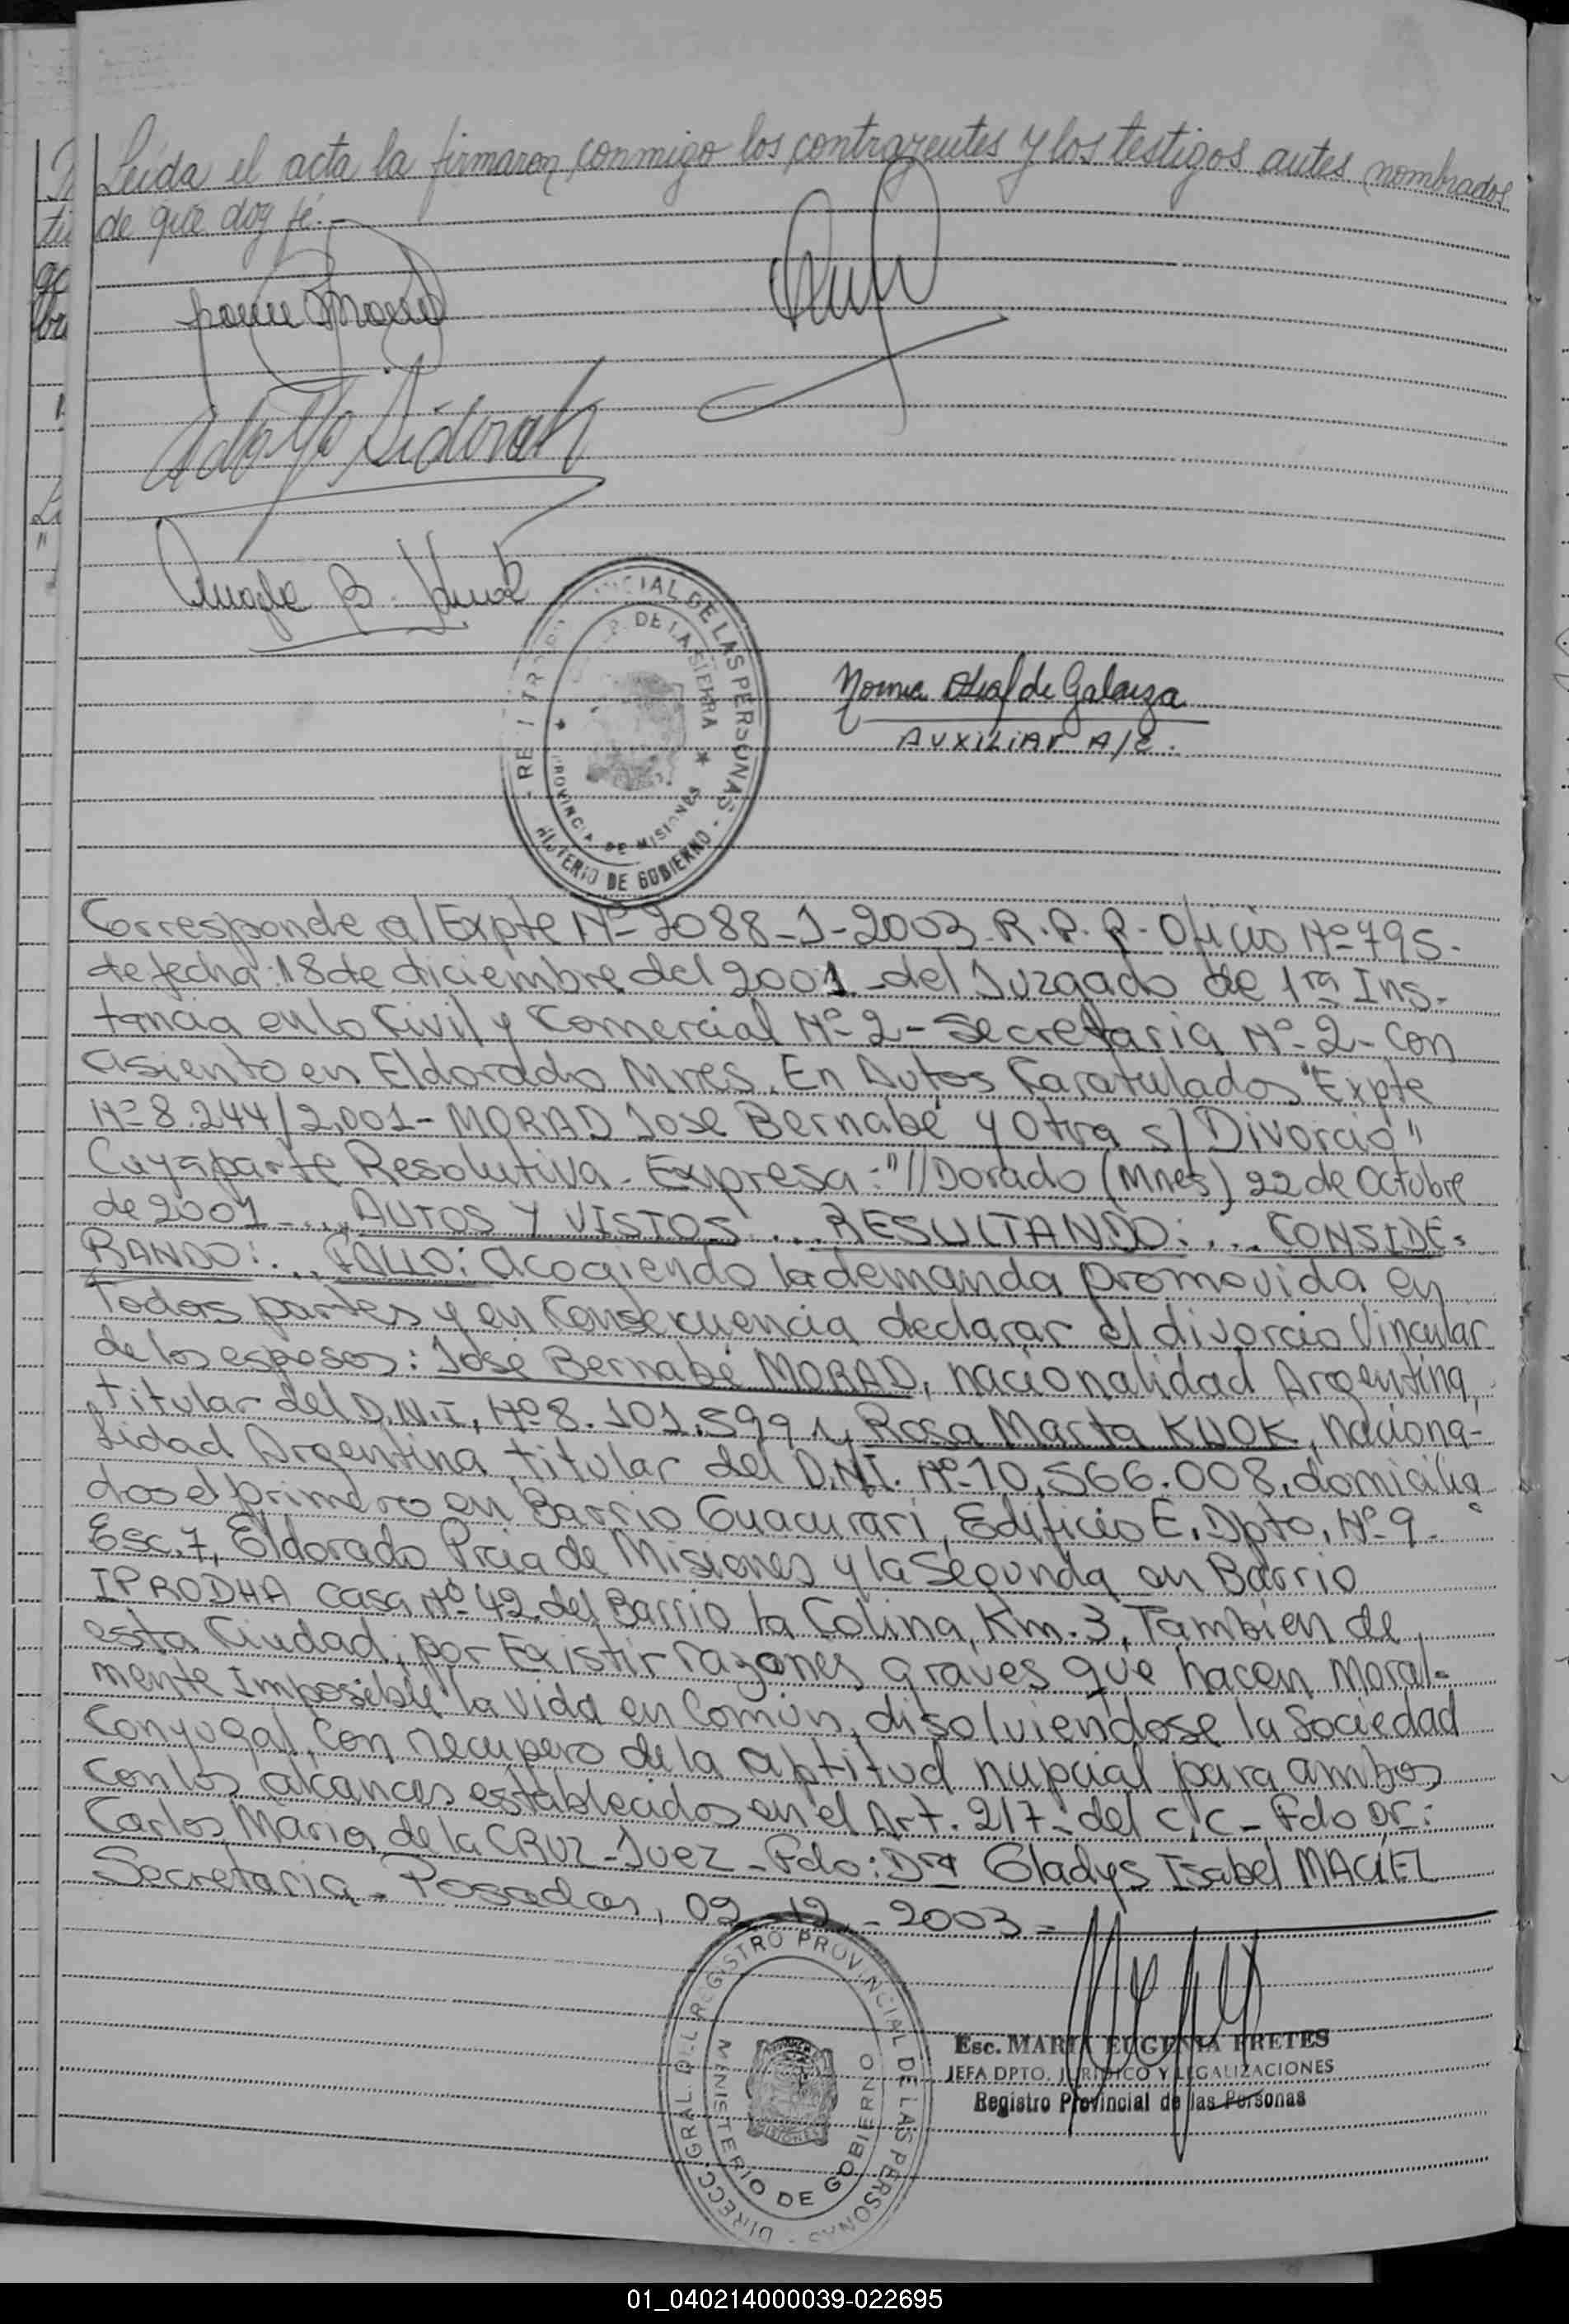 Leída el acta la firmaron conmigo los contrayentes y los testigos antes nombrados
de que doy fé.-
Adolfo Sidorak
B.
Norma de Galarza
AUXILIAR A/C.
CIAL DE LAS PERSONAS -
DE LA SIERRA
PROVINCIA DE MISIONES
DE GOBIERNO
Corresponde al Expte Nº 2088-J-2003. R.P.P. Oficio Nº 795-
de fecha: 18 de diciembre del 2001.-del Juzgado de 1ra Ins-
tancia en lo Civil y Comercial Nº 2 - Secretaria Nº 2- Con
asiento en Eldorado Mnes. En Autos Caratulados "Expte
Nº 8.244/2.001- MORAD Jose Bernabé y Otra s/ Divorcio"
Cuya parte Resolutiva - Expresa: "//Dorado (Mnes) 22 de Octubre
de 2001 - ... AUTOS Y VISTOS ... RESULTANDO: ... CONSIDE-
RANDO: ... FALLO: acogiendo la demanda promovida en
todas partes y en Consecuencia declarar el divorcio Vincular
de los esposos: José Bernabé MORAD, nacionalidad Argentina,
titular del D.N.I, Nº 8.101.599 y Rosa Marta KUOK, naciona-
lidad Argentina, titular del D.N.I. Nº 10.566.008, domicilia
dos el primero en Barrio Guacurari, Edificio E, Dpto, Nº 9-
Esc. 7, Eldorado Pcia de Misiones y la Segunda en Barrio
IPRODHA Casa Nº 42 del Barrio la Colina, Km. 3, Tambien de
esta Ciudad, por Existir razones graves que hacen Moral-
mente Imposible la vida en Común, disolviendose la Sociedad
Conyugal, Con recupero de la aptitud nupcial para ambos
Con los alcances establecidos en el Art. 217- del C.C- Fdo Dr:
Carlos Maria de la CRUZ - Juez - Fdo: Dra Gladys Isabel MACIEL
Secretaria - Posadas, 09-12-2003-
DIRECC. GRAL. DEL REGISTRO PROVINCIAL DE LAS PERSONAS -
MINISTERIO DE GOBIERNO
MISIONES
Esc. MARIA EUGENIA FRETES
JEFA DPTO. JURIDICO Y LEGALIZACIONES
Registro Provincial de las Personas
01_040214000039-022695